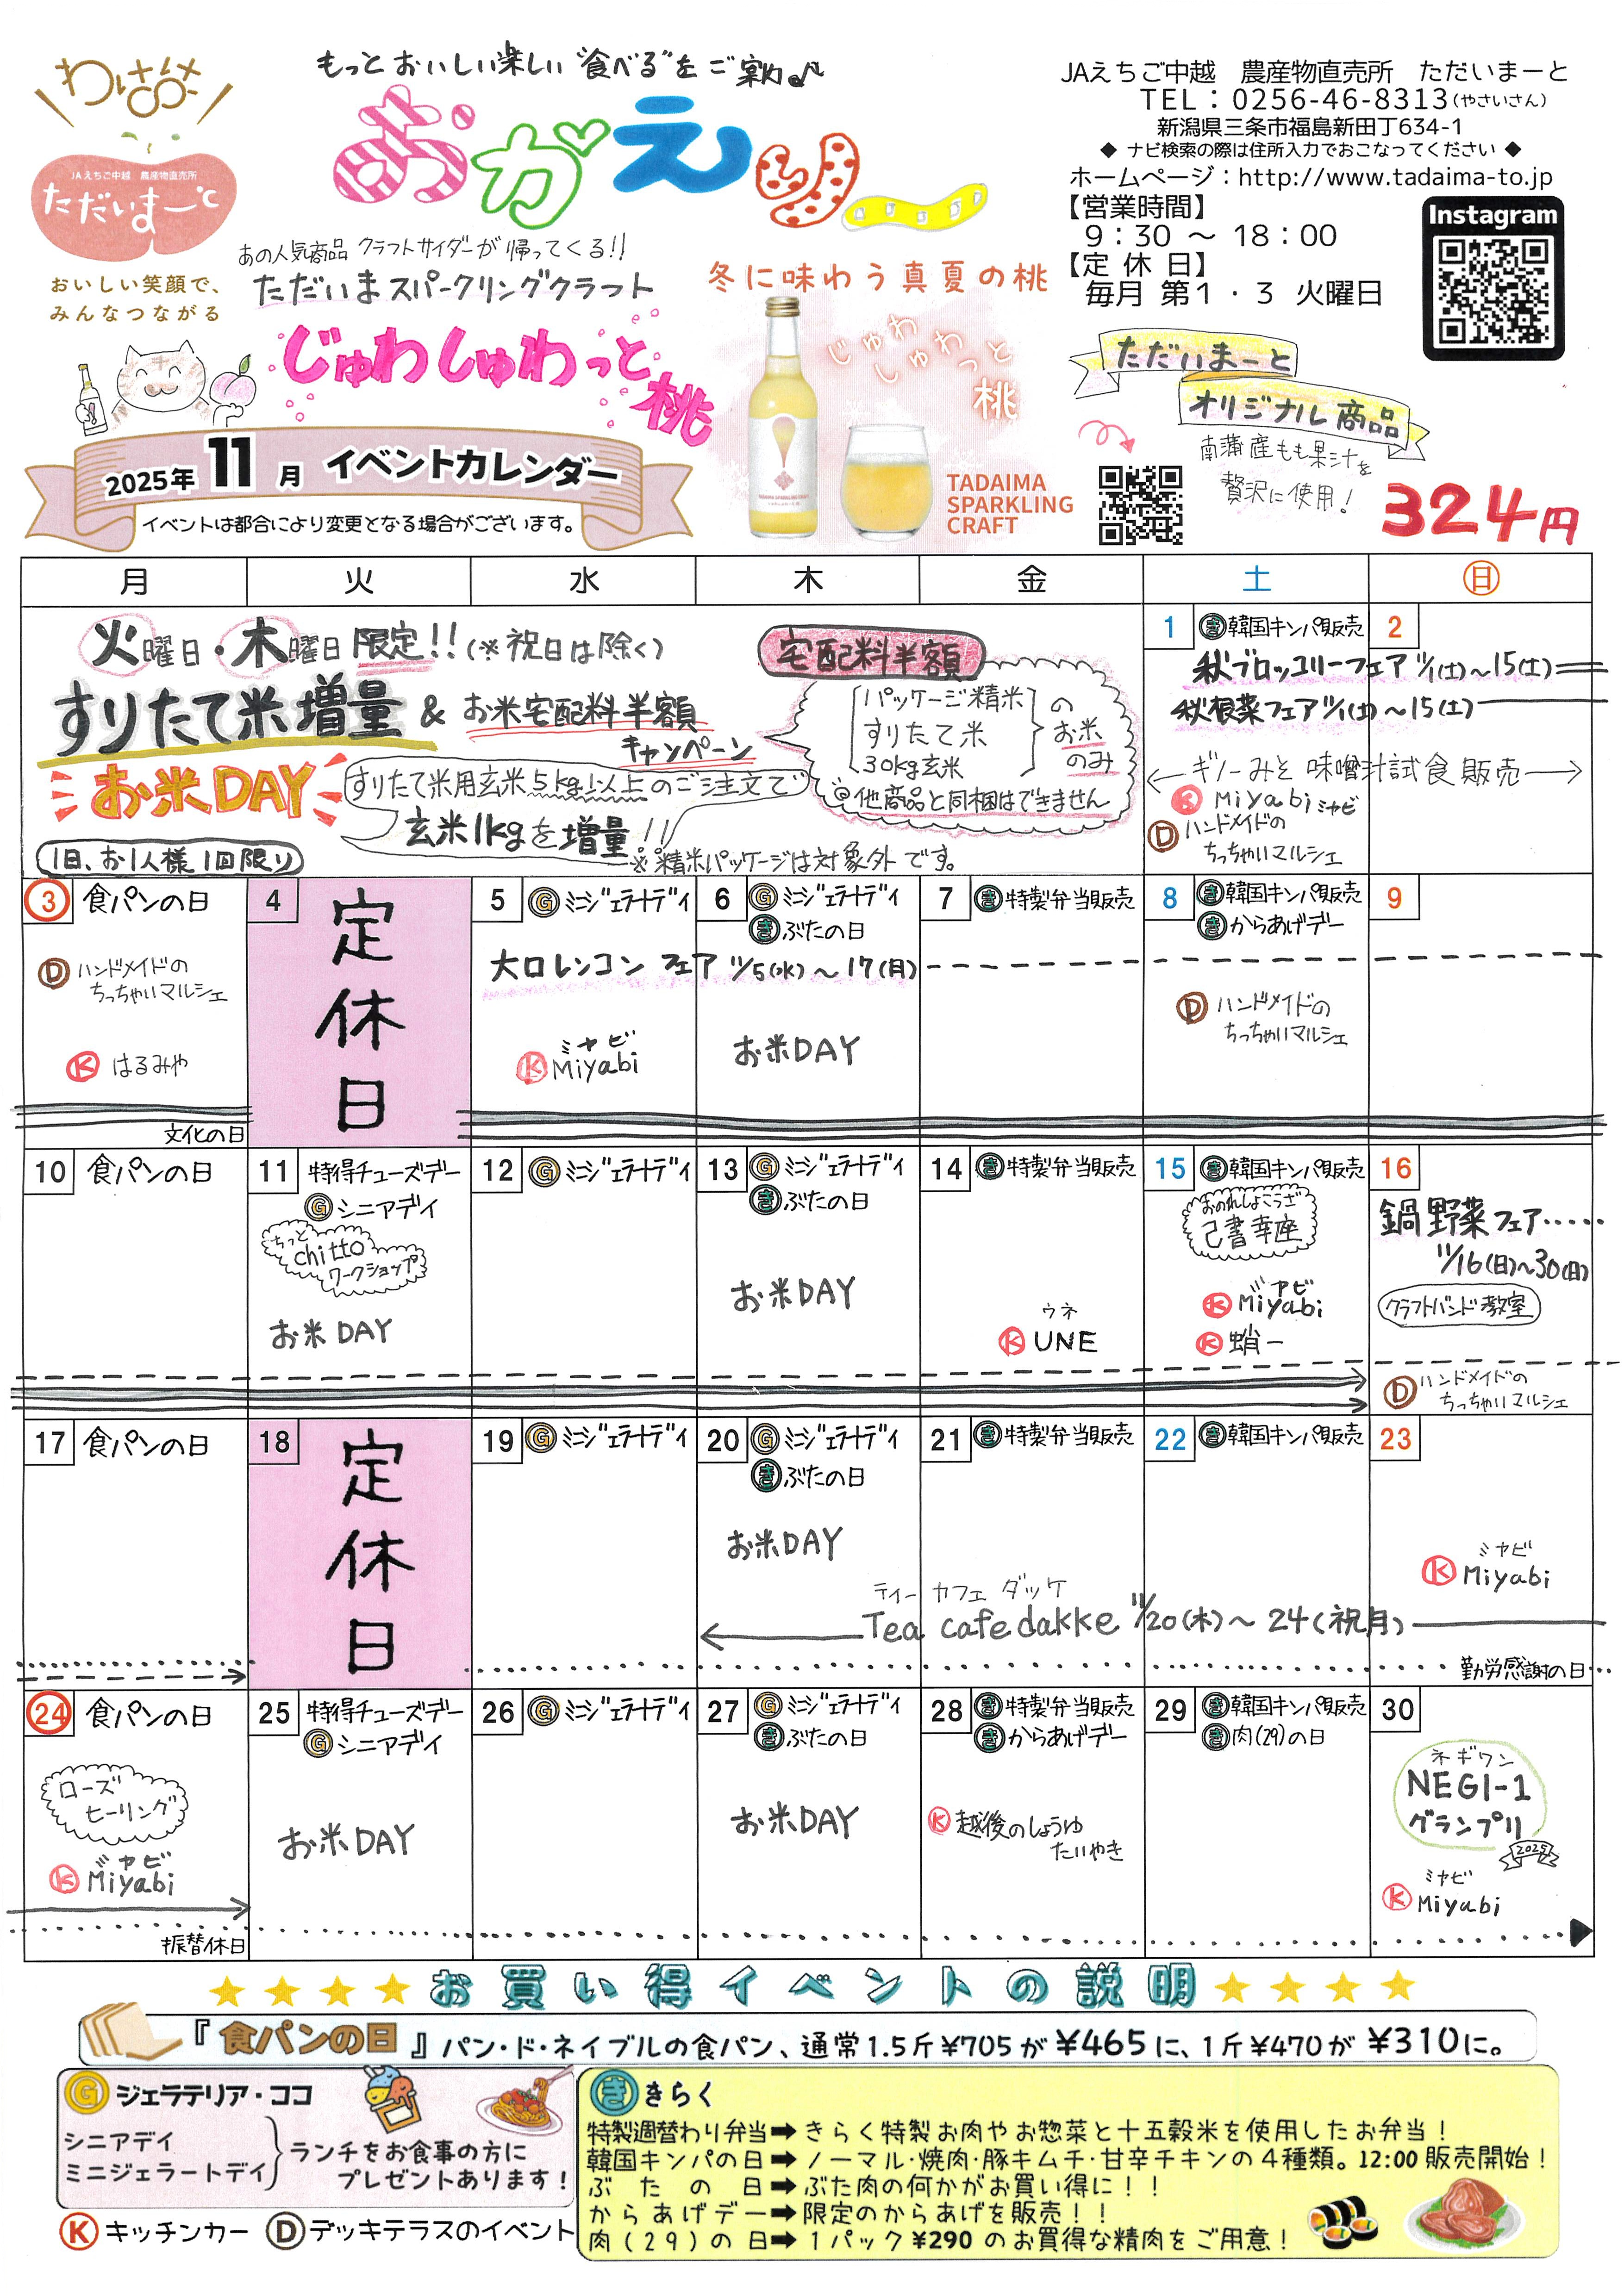 わはは
JAえちご中越 農産物直売所
ただいまーと
おいしい笑顔で、
みんなつながる
もっとおいしい楽しい"食べる"をご案内♪
おかえりー
JAえちご中越 農産物直売所 ただいまーと
TEL：0256-46-8313(やさいさん)
新潟県三条市福島新田丁634-1
◆ ナビ検索の際は住所入力でおこなってください ◆
ホームページ：http://www.tadaima-to.jp
【営業時間】
9：30 ～ 18：00
【定休日】
毎月 第1・3 火曜日
Instagram
あの人気商品 クラフトサイダーが帰ってくる!!
ただいまスパークリングクラフト
じゅわしゅわっと桃
冬に味わう真夏の桃
じゅわ
しゅわっと
桃
TADAIMA
SPARKLING
CRAFT
ただいまーと
オリジナル商品
南蒲産もも果汁を
贅沢に使用！
324円
2025年 11月 イベントカレンダー
イベントは都合により変更となる場合がございます。
月 火 水 木 金 土 日
火曜日・木曜日限定!!(※祝日は除く)
すりたて米増量 & お米宅配料半額
キャンペーン
お米DAY
すりたて米用玄米5kg以上のご注文で
玄米1kgを増量!!
※精米パッケージは対象外です。
1日、お1人様1回限り
宅配料半額
パッケージ精米
すりたて米
30kg玄米
のお米のみ
◎他商品と同梱はできません
1 き韓国キンパ販売
2
秋ブロッコリーフェア 11/1(土)～15(土)
秋根菜フェア 11/1(土)～15(土)
ギノーみそ 味噌汁試食販売
K Miyabi ミヤビ
D ハンドメイドの
ちっちゃいマルシェ
3 食パンの日
D ハンドメイドの
ちっちゃいマルシェ
K はるみや
文化の日
4
定休日
5 G ミニジェラートデイ
大口レンコン フェア 11/5(水)～17(月)
ミヤビ
K Miyabi
6 G ミニジェラートデイ
き ぶたの日
お米DAY
7 き 特製弁当販売
8 き 韓国キンパ販売
き からあげデー
D ハンドメイドの
ちっちゃいマルシェ
9
10 食パンの日
11 特得チューズデー
G シニアデイ
ちっと
chitto
ワークショップ
お米DAY
12 G ミニジェラートデイ
13 G ミニジェラートデイ
き ぶたの日
お米DAY
14 き 特製弁当販売
ウネ
K UNE
15 き 韓国キンパ販売
おのれしょこうざ
己書幸座
ミヤビ
K Miyabi
K 蛸一
16
鍋野菜フェア……
11/16(日)～30(日)
クラフトバンド教室
D ハンドメイドの
ちっちゃいマルシェ
17 食パンの日
18
定休日
19 G ミニジェラートデイ
20 G ミニジェラートデイ
き ぶたの日
お米DAY
ティー カフェ ダッケ
Tea cafe dakke 11/20(木)～24(祝月)
21 き 特製弁当販売
22 き 韓国キンパ販売
23
ミヤビ
K Miyabi
勤労感謝の日
24 食パンの日
ローズ
ヒーリング
ミヤビ
K Miyabi
振替休日
25 特得チューズデー
G シニアデイ
お米DAY
26 G ミニジェラートデイ
27 G ミニジェラートデイ
き ぶたの日
お米DAY
28 き 特製弁当販売
き からあげデー
K 越後のしょうゆ
たいやき
29 き 韓国キンパ販売
き 肉(29)の日
30
ネギワン
NEGI-1
グランプリ
2025
ミヤビ
K Miyabi
★★★★お買い得イベントの説明★★★★
『食パンの日』パン・ド・ネイブルの食パン、通常1.5斤¥705が¥465に、1斤¥470が¥310に。
G ジェラテリア・ココ
シニアデイ
ミニジェラートデイ
ランチをお食事の方に
プレゼントあります！
K キッチンカー D デッキテラスのイベント
き きらく
特製週替わり弁当➡きらく特製お肉やお惣菜と十五穀米を使用したお弁当！
韓国キンパの日➡ノーマル・焼肉・豚キムチ・甘辛チキンの4種類。12:00販売開始！
ぶたの日➡ぶた肉の何かがお買い得に！！
からあげデー➡限定のからあげを販売！！
肉(29)の日➡1パック¥290のお買得な精肉をご用意！